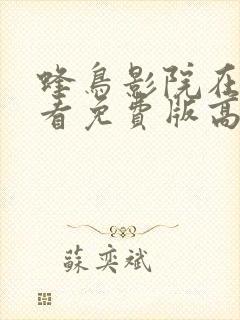 蜂鳥影院在
看免費版高
蘇奕斌